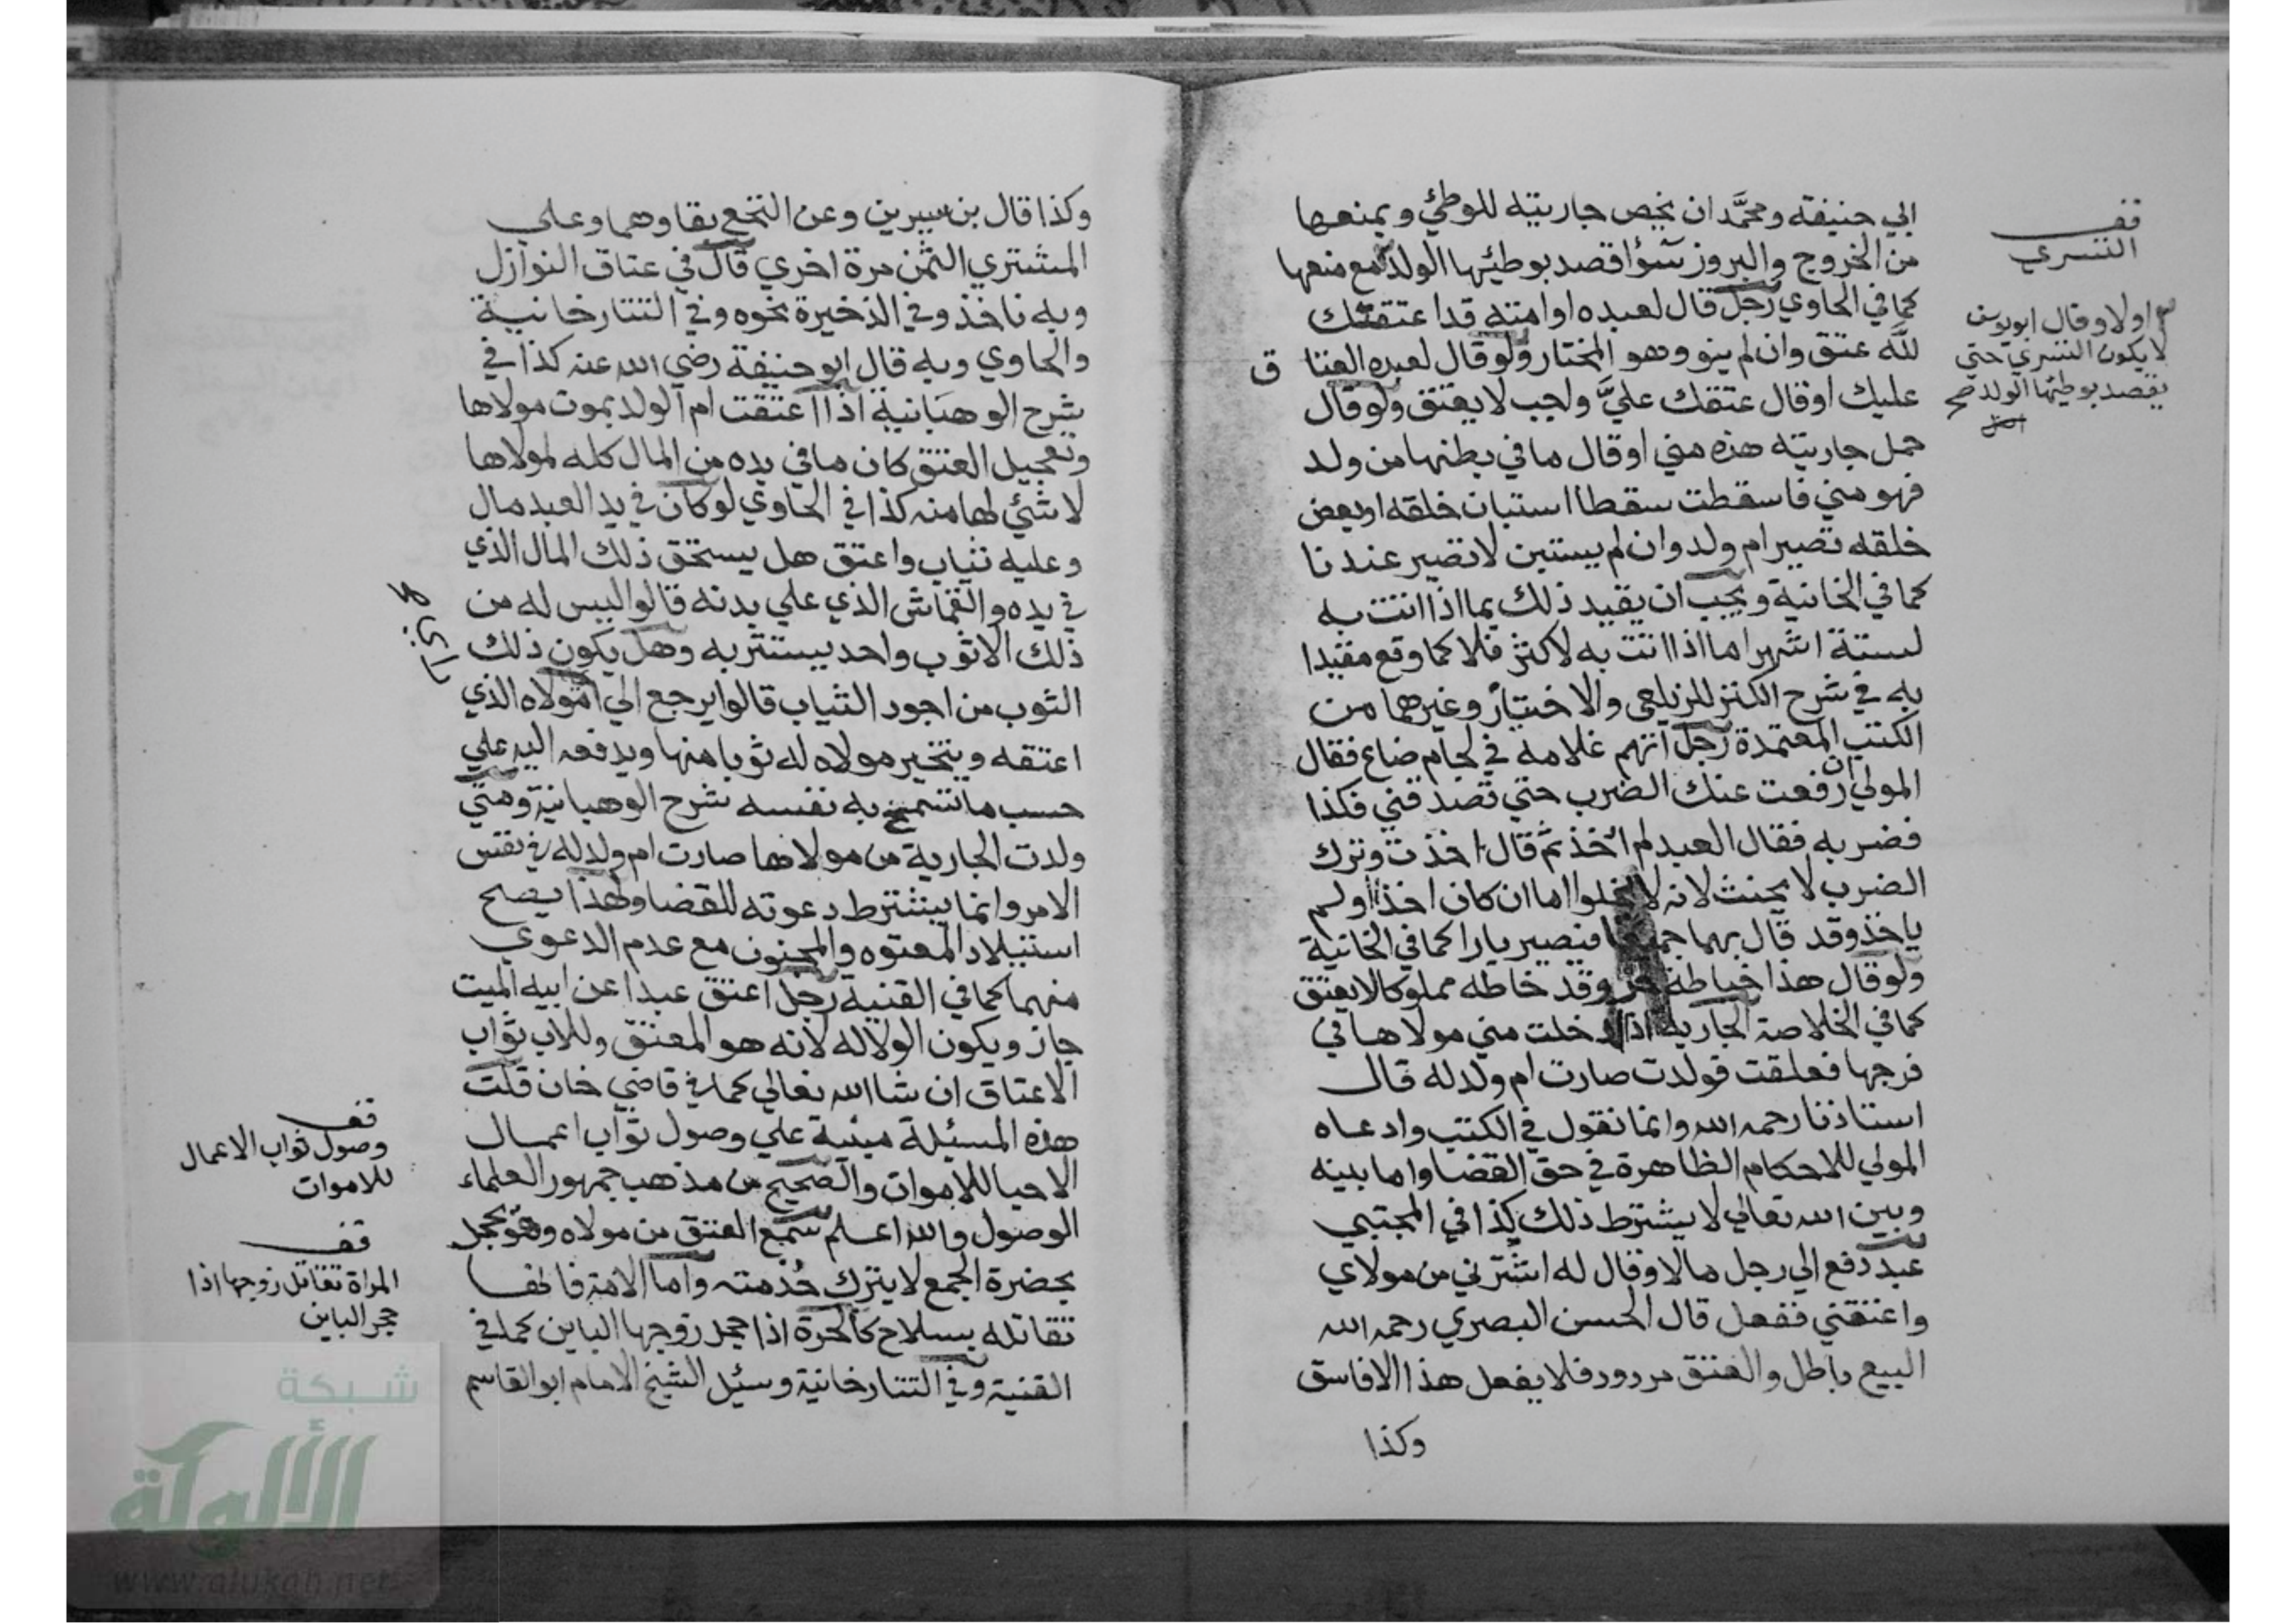 ابي حنيفة ومحمد ان يخص جاريته للوطئ ويمنعها
من الخروج والبروز سؤا قصد بوطئها الولد مع منعها
كما في الحاوي رجل قال لعبده او امته قد اعتقتك
لله عتق وان لم ينو وهو المختار ولو قال لعبده العتا ق
عليك او قال عتقك عليَّ واجب لا يعتق ولو قال
حمل جاريته هذه مني او قال ما في بطنها من ولد
فهو مني فاسقطت سقطا استبان خلقه او بعض
خلقه تصير ام ولد وان لم يستبن لا تصير عندنا
كما في الخانية ويجب ان يقيد ذلك بما اذا اتت به
لستة اشهر اما اذا اتت به لاكثر فلا كما وقع مقيدا
به في شرح الكنز للزيلعي والاختيار وغيرهما من
الكتب المعتمدة رجل اتهم غلامه في لجام ضاع فقال
المولي ان رفعت عنك الضرب حتي تصدقني فكذا
فضربه فقال العبد لم اخذ ثم قال اخذت وترك
الضرب لا يحنث لانه لا يخلوا اما ان كان اخذ اولم
ياخذ وقد قال بهما جميعا فيصير بارا كما في الخانية
ولو قال هذا خياطة حر وقد خاطه مملوكا لا يعتق
كما في الخلاصة الجارية اذا ادخلت مني مولاها في
فرجها فعلقت فولدت صارت ام ولد له قال
استاذنا رحمه الله وانما نقول في الكتب وادعاه
المولي للاحكام الظاهرة في حق القضا واما بينه
وبين الله تعالي لا يشترط ذلك كذا في المجتبي
عبد دفع الي رجل مالا وقال له اشترني من مولاي
واعتقني ففعل قال الحسن البصري رحمه الله
البيع باطل والعتق مردود فلا يفعل هذا الا فاسق
وكذا
قف
التسري
اولا وقال ابو يوسف
لا يكون التسري حتي
يقصد بوطئها الولد صح
اصل
وكذا قال بن سيرين وعن النخع بقاوهما وعلي
المشتري الثمن مرة اخري قال في عتاق النوازل
وبه ناخذ وفي الذخيرة نحوه وفي التتارخانية
والحاوي وبه قال ابو حنيفة رضي الله عنه كذا في
شرح الوهبانية اذا اعتقت ام الولد بموت مولاها
وتعجيل العتق كان ما في يده من المال كله لمولاها
لا شئي لها منه كذا في الحاوي لو كان في يد العبد مال
وعليه ثياب واعتق هل يستحق ذلك المال الذي
في يده والقماش الذي علي بدنه قالوا ليس له من
ذلك الا ثوب واحد يستتر به وهل يكون ذلك
الثوب من اجود الثياب قالوا يرجع الي مولاه الذي
اعتقه ويتخير مولاه له ثوبا منها ويدفعه اليه علي
حسب ما تسمح به نفسه شرح الوهبانية ومتي
ولدت الجارية من مولاها صارت ام ولد له في نفس
الامر وانما يشترط دعوته للقضا ولهذا يصح
استيلاد المعتوه والمجنون مع عدم الدعوي
منهما كما في القنية رجل اعتق عبدا عن ابيه الميت
جاز ويكون الولا له لانه هو المعتق وللاب ثواب
الاعتاق ان شا الله تعالي كما في قاضي خان قلت
هذه المسئلة مبنية علي وصول ثواب اعمال
الاحيا للاموات والصحيح من مذهب جمهور العلماء
الوصول والله اعلم سمع العتق من مولاه وهو يجحد
بحضرة الجمع لا يترك خدمته واما الامة فانها
تقاتله بسلاح كالحرة اذا جحد زوجها الباين كما في
القنية وفي التتارخانية وسئل الشيخ الامام ابو القاسم
قف
وصول ثواب الاعمال
للاموات
قف
المراة تقاتل زوجها اذا
جحد الباين
شبكة
الألوكة
www.alukah.net